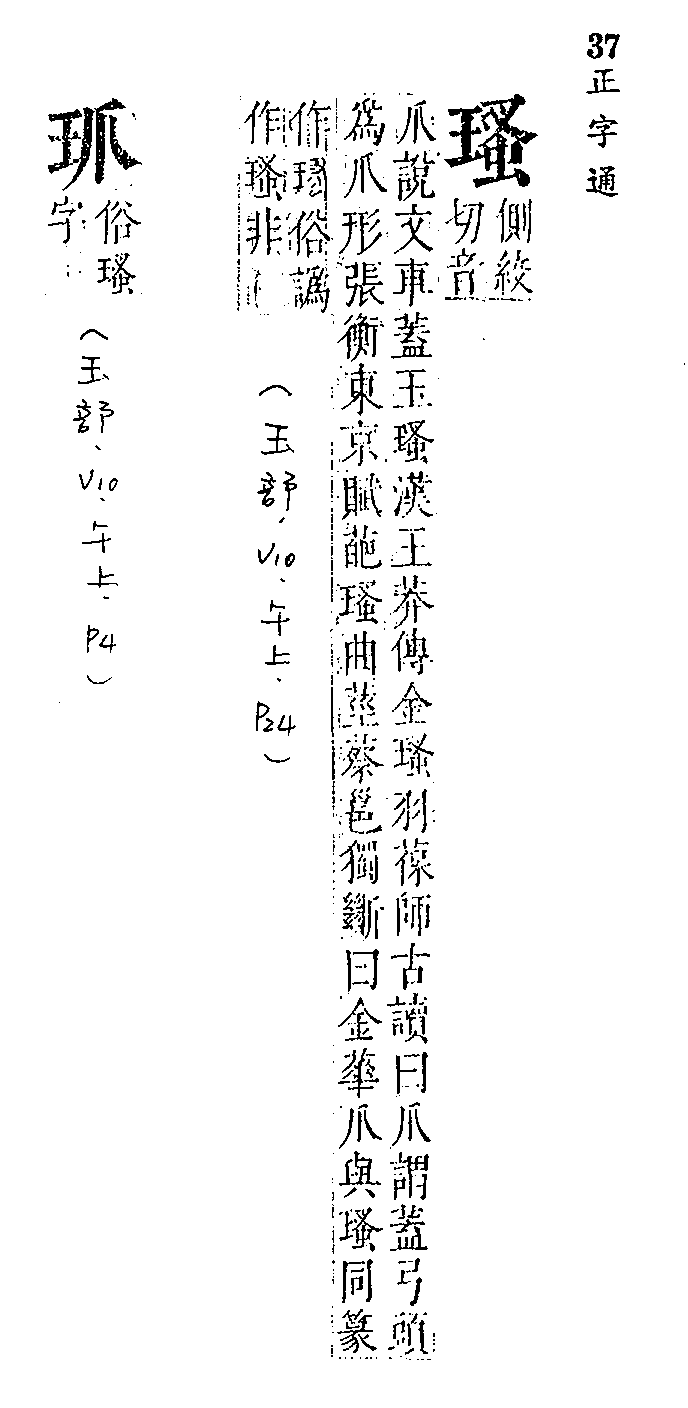 37
正字通
瑵
側絞
切音
爪說文車蓋玉瑵漢王莽傳金瑵羽葆師古讀曰爪謂蓋弓頭
爲爪形張衡東京賦葩瑵曲莖蔡邕獨斷曰金華爪與瑵同篆
作俗譌
作瑵非
(玉部、V10、午上、P24)
俗瑵
字
(玉部、V10、午上、P4)